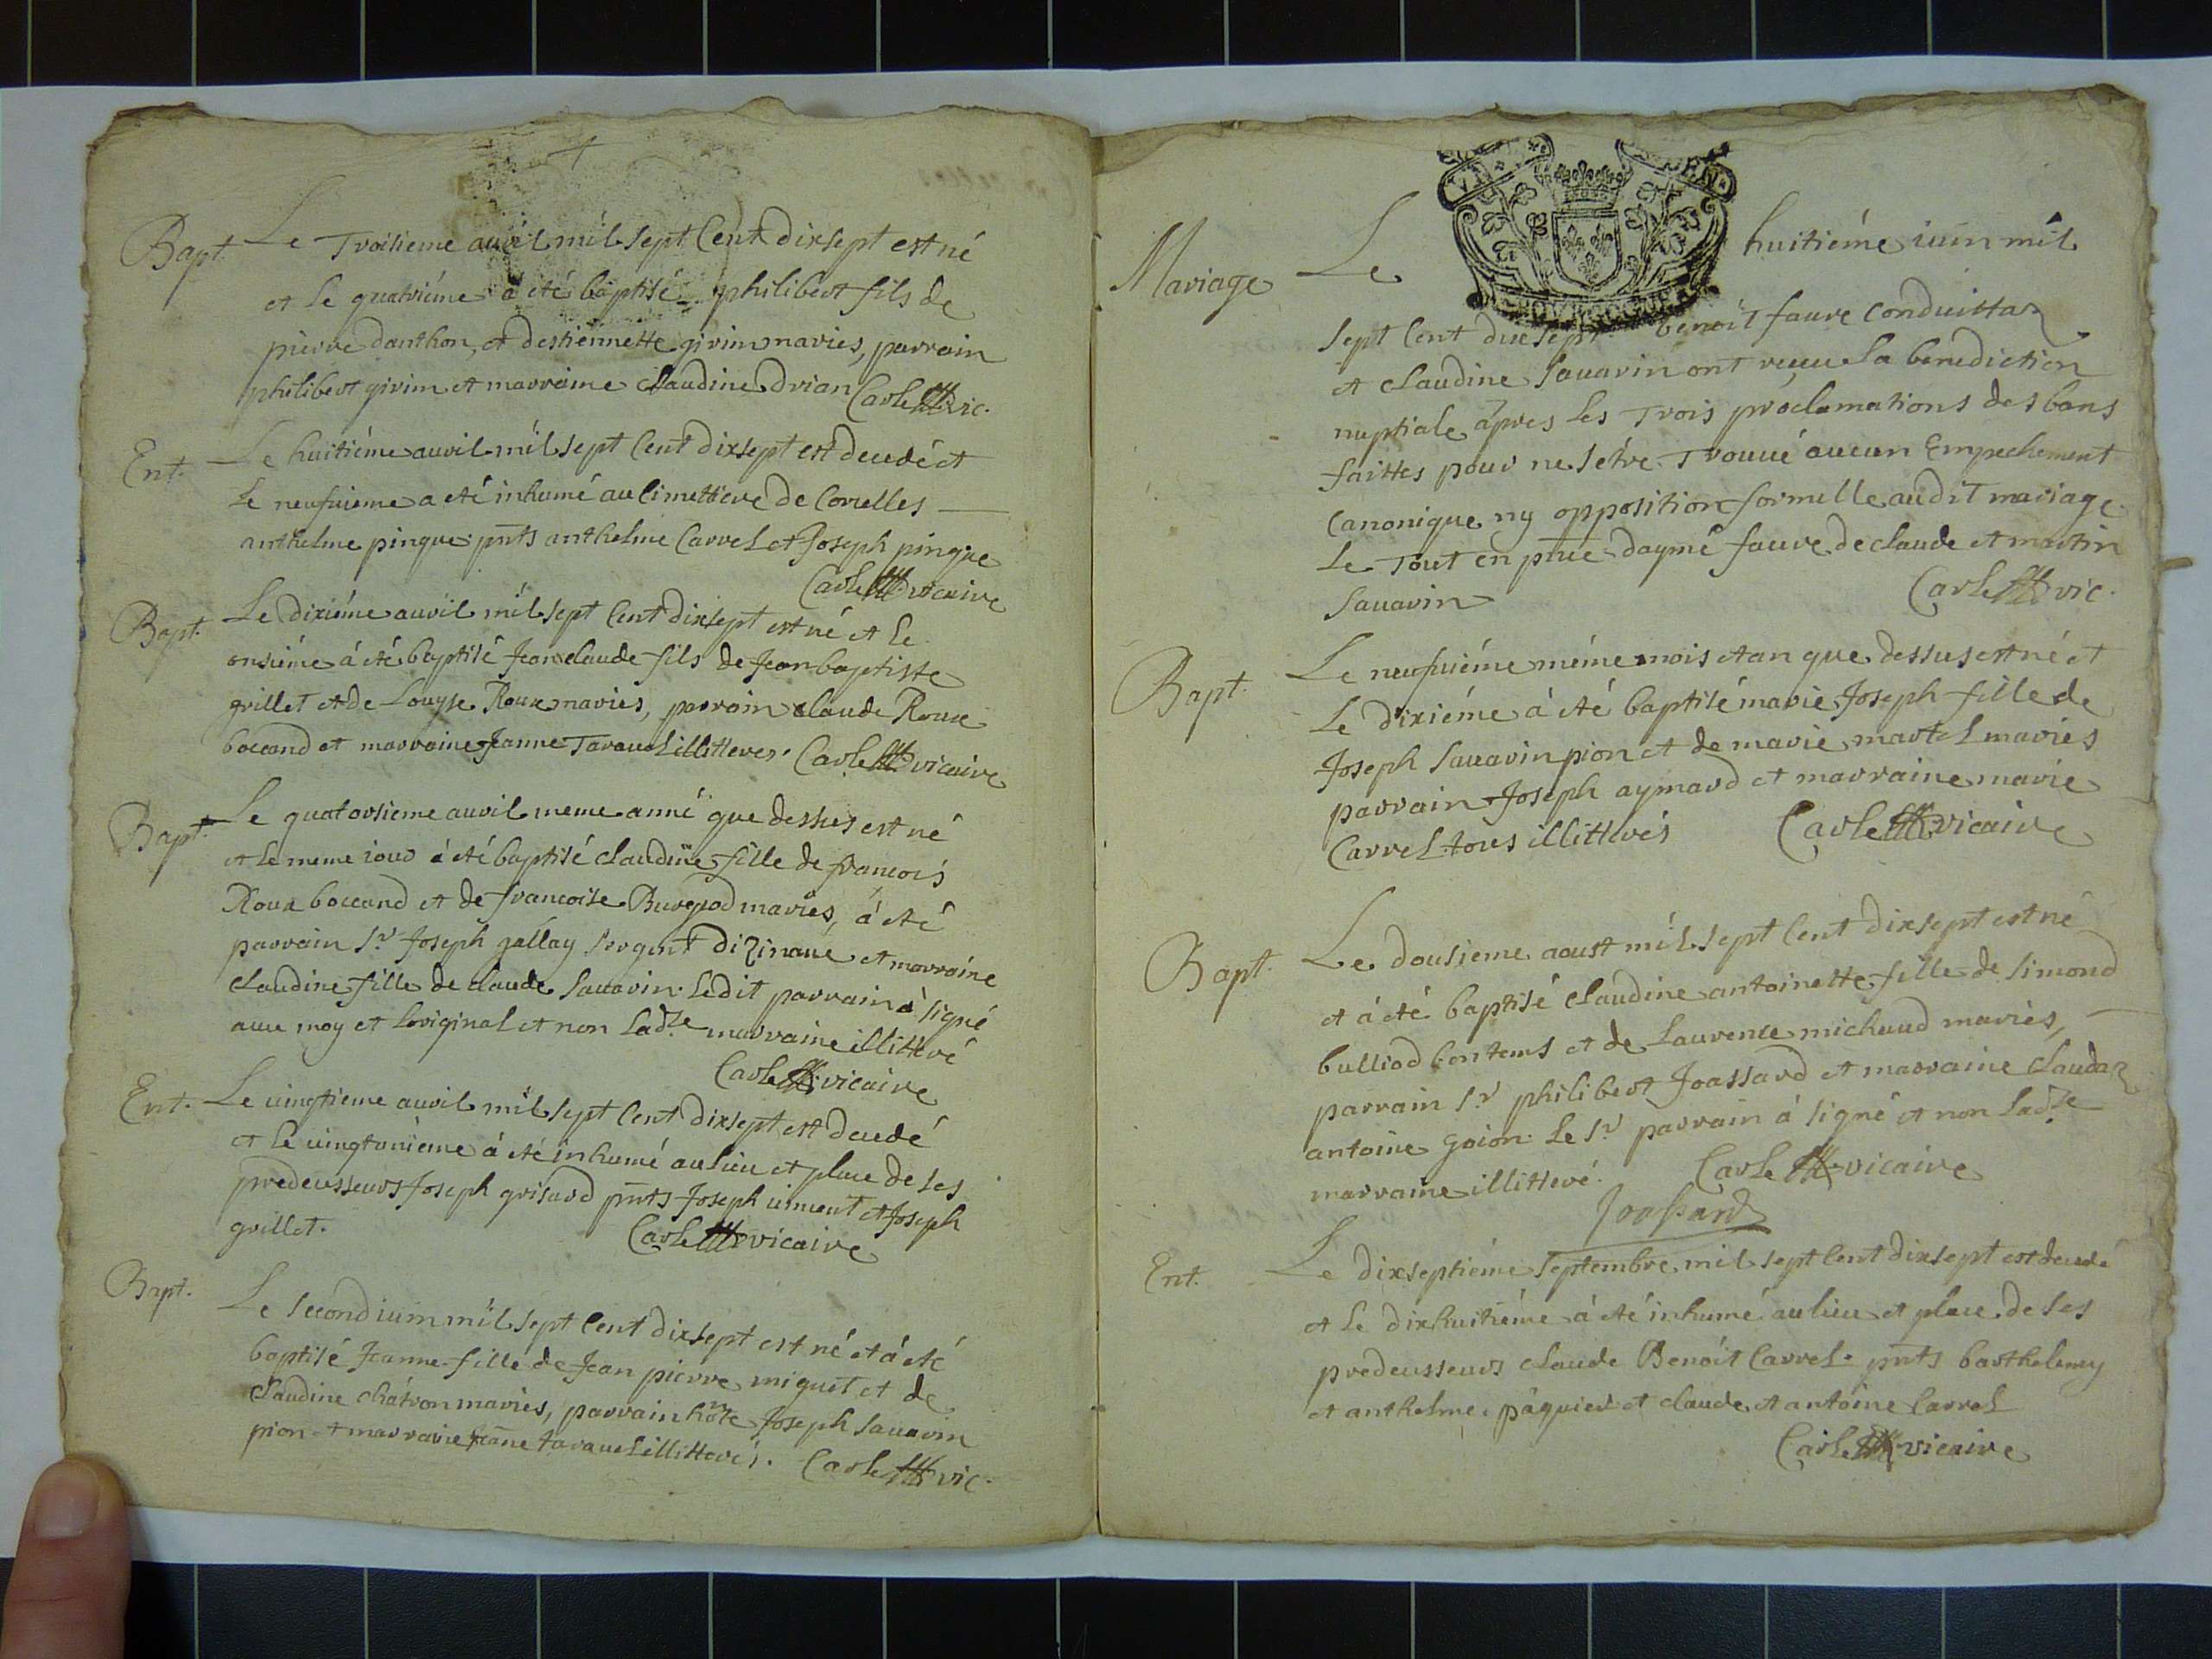 Bapt. Le Troisieme avvil mil sept Cent dixsept est né
et le quatriéme à été baptisé philibert fils de
pierre danthon, et destiennette givin mariés, parrain
philibert givin et marraine Claudine Drian Carle vic.
Ent. Le huitiéme avvil mil sept Cent dixsept est decedé et
le neufuieme a été inhumé au Cimettiere de Corcelles
anthelme pingue pnts anthelme Carrel et Joseph pingue
Carle vicaire
Bapt. Le dixiéme avvil mil sept Cent dixsept est né et le
onsiéme à été baptisé Jean claude fils de Jean baptiste
grillet et de Louyse Roux mariés, parrain claude Roux
boccand et marraine Jeanne Taravel illitteres. Carle vicaire
Bapt. Le quatorsieme avvil meme anné que dessus est né
et le meme iour à été baptisé claudine fille de francois
Roux boccand et de francoise Burgiod mariés, à été
parrain Sr Joseph gallay sergent dizinave et marraine
claudine fille de claude Sauarin. ledit parrain à signé
auec moy et loriginal et non ladte marraine illitteré
Carle vicaire
Ent. Le uingtieme avvil mil sept Cent dixsept est decedé
et le uingtunieme à été inhumé au lieu et place de ses
predecesseurs Joseph grisard pnts Joseph iument et Joseph
grillet. Carle vicaire
Bapt. Le second iuin mil sept Cent dixsept est né et à été
baptisé Jeanne fille de Jean pierre miguet et de
Claudine châtron mariés, parrain hôte Joseph Sauarin
pion et marraine Jeane taravel illitterés. Carle vic.
Mariage Le huitiéme iuin mil
sept Cent dixsept benoit faure Conduittaz
et claudine Sauarin ont reçue la benediction
nuptiale âpres les Trois proclamations des bans
faittes pour ne sétre Trouué aucun Empechement
Canonique ny opposition formelle audit mariage
Le Tout en pnce daymé faure de claude et martin
Sauarin Carle vic.
Bapt. Le neufuiéme méme mois et an que dessus est né et
Le dixiéme à été baptisé marie Joseph fille de
Joseph Sauarin pion et de marie martel mariés
parrain Joseph aymard et marraine marie
Carrel tous illitterés Carle vicaire
Bapt. Le dousieme aoust mil sept Cent dixsept est né
et à été baptisé claudine antoinette fille de simond
bulliod bontems et de Laurence michaud mariés,
parrain Sr philibert Joassard et marraine claudaz
antoine goion. le Sr parrain à signé et non ladte
marraine illitteré. Carle vicaire
Joassard
Ent. Le dixseptiéme septembre mil sept Cent dixsept est decedé
et le dixhuitiéme à été inhumé au lieu et place de ses
predecesseurs claude Benoit Carrel. pnts barthelemy
et anthelme pâquier et claude et antoine Carrel
Carle vicaire